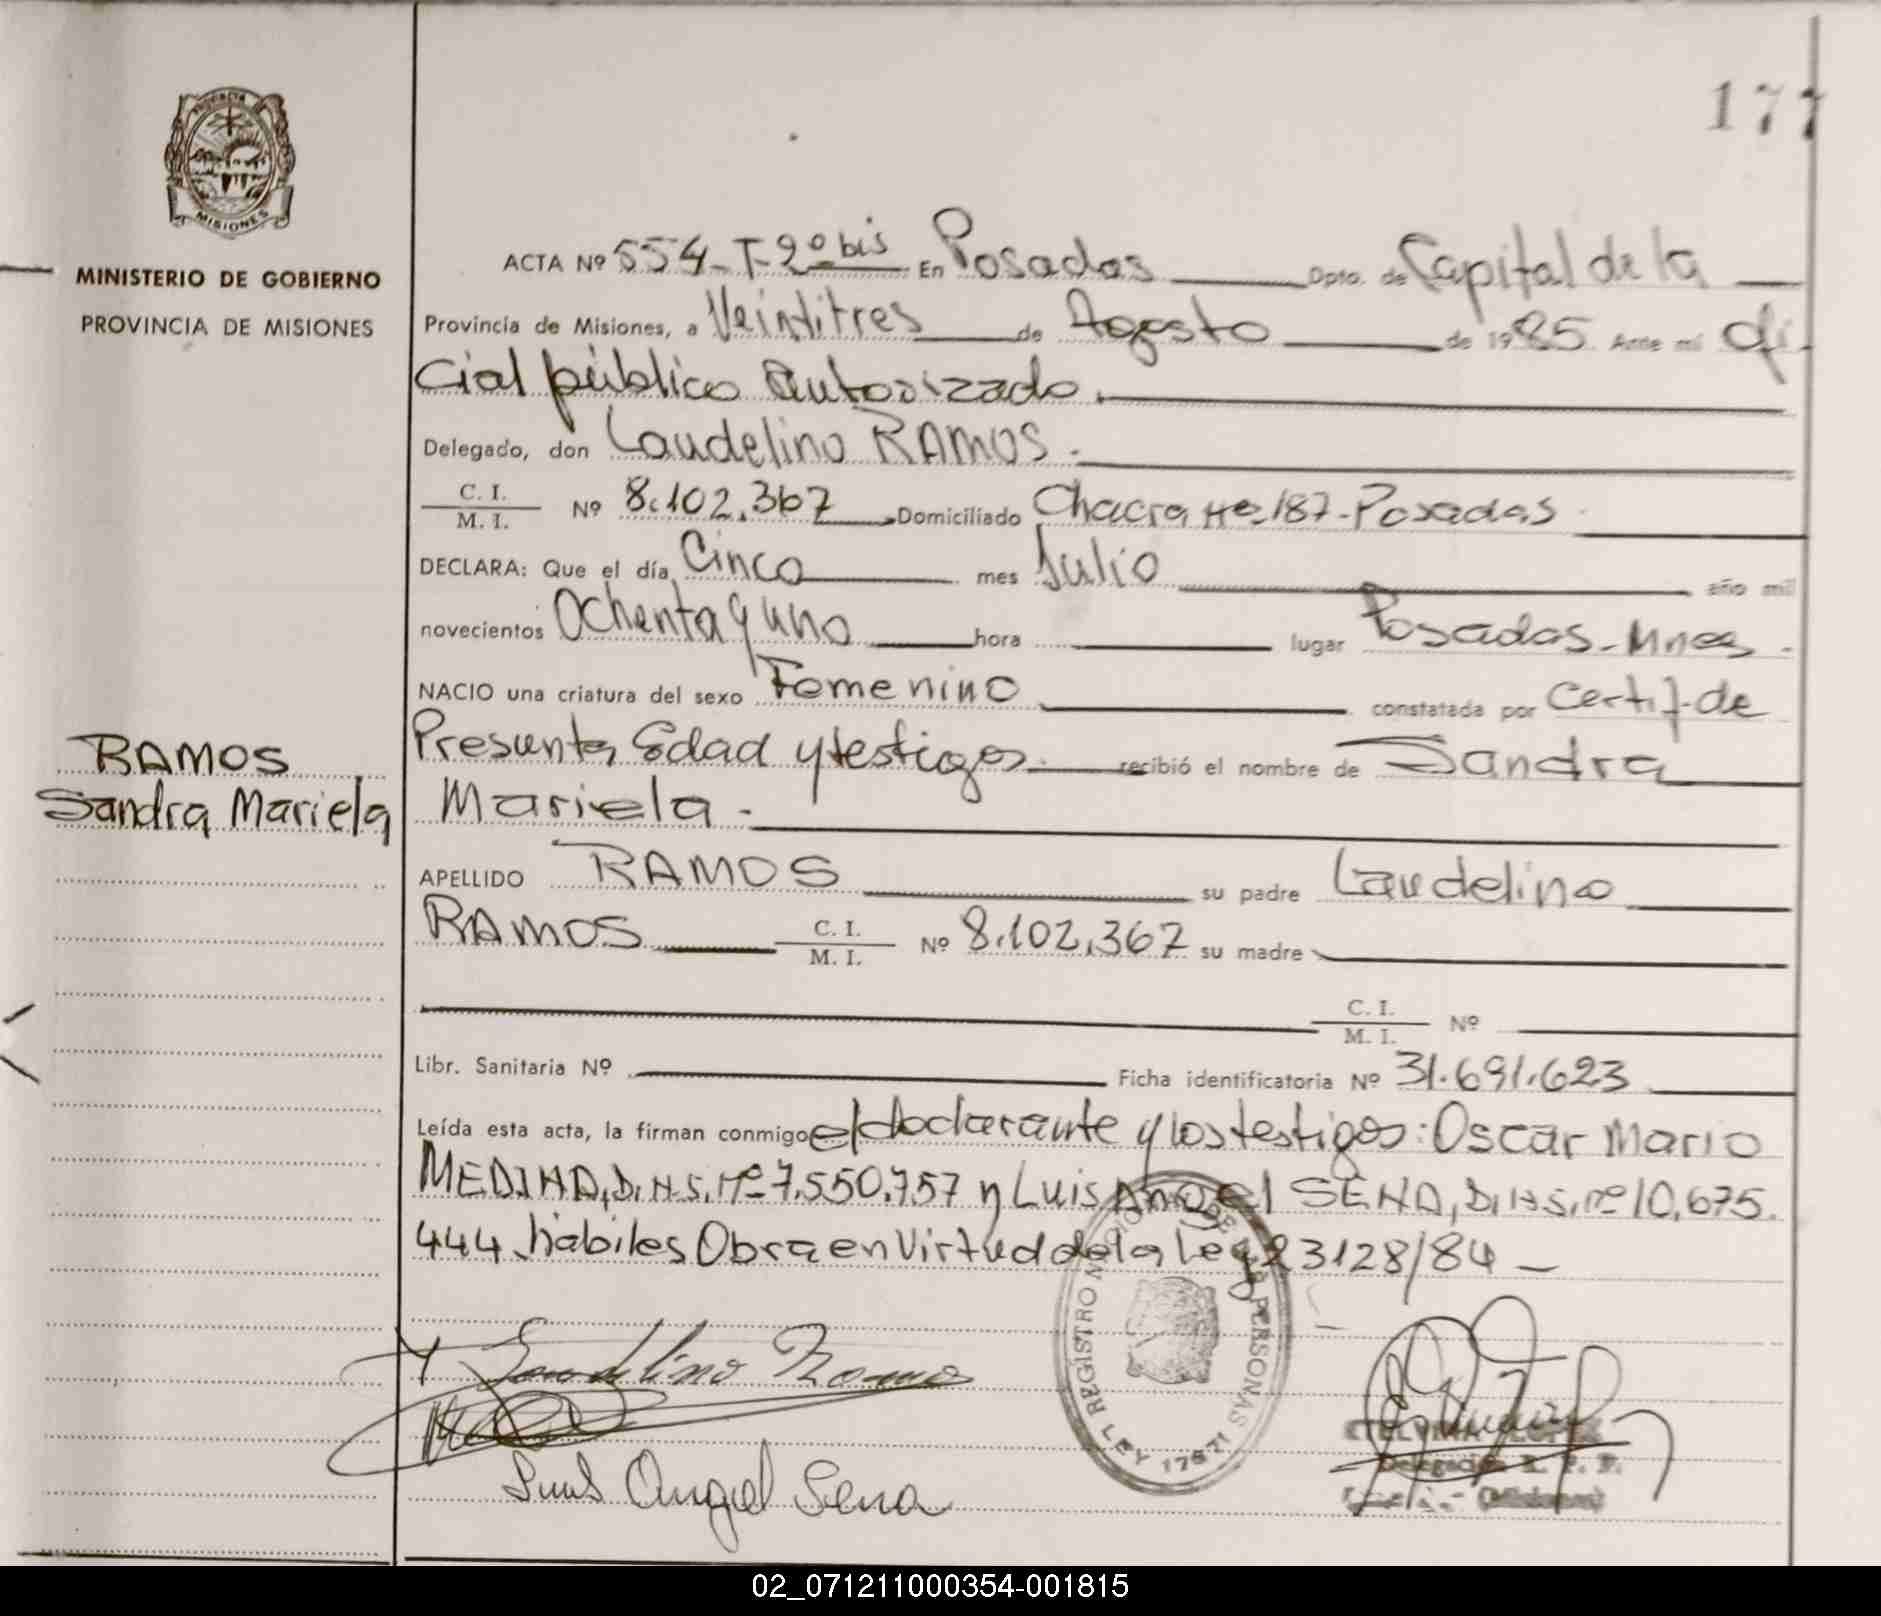 177
PROVINCIA
MISIONES
MINISTERIO DE GOBIERNO
PROVINCIA DE MISIONES
RAMOS
Sandra Mariela
ACTA Nº 554-T-2º bis En Posadas Dpto. de Capital de la
Provincia de Misiones, a Veintitres de Agosto de 1985 Ante mi ofi
cial público autorizado.
Delegado, don Laudelino RAMOS.
C. I.
M. I. Nº 8.102.367 Domiciliado Chacra Nº 187-Posadas
DECLARA: Que el día Cinco mes Julio año mil
novecientos Ochenta y uno hora lugar Posadas-Mnes-
NACIO una criatura del sexo Femenino constatada por Certif-de
Presunta Edad y testigos recibió el nombre de Sandra
Mariela.
APELLIDO RAMOS su padre Laudelino
RAMOS C. I.
M. I. Nº 8.102.367 su madre
C. I.
M. I. Nº
Libr. Sanitaria Nº Ficha identificatoria Nº 31.691.623
Leída esta acta, la firman conmigo el declarante y los testigos: Oscar Mario
MEDINA, D.N.I. Nº 7.550.757 y Luis Angel SENA, D.N.I. nº 10.675.
444 hábiles Obra en Virtud de la Ley 23128/84 -
REGISTRO NACIONAL DE LAS PERSONAS
LEY 17671
Laudelino Ramos
Luis Angel Sena
Delegación R. P. P.
(Misiones)
02_071211000354-001815